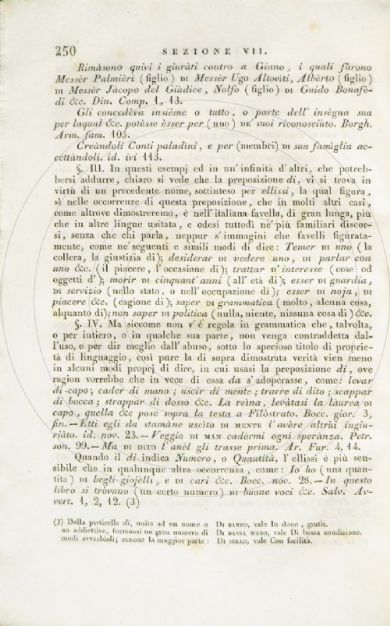 250 SEZIONE VII.
Rimàsono quivi i giuràti contro a Giano, i quali fùrono
Messèr Palmièri (figlio) DI Messèr Ugo Altoviti, Albèrto (figlio)
DI Messèr Jàcopo del Giùdice, Nolfo (figlio) DI Guido Bonafè-
di &c. Din. Comp. 1, 13.
Gli concedèva insième o tutto, o parte dell' insègna sua
per laqual &c. potèsse èsser per (uno) DE' suoi riconosciùto. Borgh.
Arm. fam. 105.
Creàndoli Conti paladini, e per (membri) DI sua famìglia ac-
cettàndoli. id. ivi 113.
§. III. In questi esempj ed in un' infinità d'altri, che potreb-
bersi addurre, chiaro si vede che la preposizione di, vi si trova in
virtù di un precedente nome, sottinteso per ellissi, la qual figura,
sì nelle occorrenze di questa preposizione, che in molti altri casi,
come altrove dimostreremo, è nell'italiana favella, di gran lunga, più
che in altre lingue usitata, e odesi tuttodì ne' più familiari discor-
si, senza che chi parla, neppur s' immagini che favelli figurata-
mente, come ne' seguenti e simili modi di dire: Temer DI uno (la
collera, la giustizia di); desiderar DI vedere uno, DI parlar con
uno &c. (il piacere, l'occasione di); trattar D' interesse (cose od
oggetti d'); morir DI cinquant' anni (all' età di); esser DI guardia,
DI servizio (nello stato, o nell'occupazione di); esser DI noja, DI
piacere &c. (cagione di); saper DI grammatica (molto, alcuna cosa,
alquanto di); non saper DI politica (nulla, niente, nissuna cosa di) &c.
§. IV. Ma siccome non v' è regola in grammatica che, talvolta,
o per intiero, o in qualche sua parte, non venga contraddetta dal-
l'uso, o per dir meglio dall' abuso, sotto lo specioso titolo di proprie-
tà di linguaggio, così pure la di sopra dimostrata verità vien meno
in alcuni modi proprj di dire, in cui usasi la preposizione di, ove
ragion vorrebbe che in vece di essa da s'adoperasse, come: levar
di capo; cader di mano; uscir di mente; trarre di dito; scappar
di bocca; strappar di dosso &c. La reìna, levàtasi la laurèa DI
capo, quella &c pose sopra la testa a Filòstrato. Bocc. gior. 3,
fin. — Etti egli da stamàne uscìto DI MENTE l' avère altrùi ingiu-
riàto. id. nov. 23. — Veggio DI MAN cadermi ogni speranza. Petr.
son. 99. — Ma DI DITO l'anèl gli trasse prima. Ar. Fur. 4, 14.
Quando il di indica Numero, o Quantità, l' ellissi è più sen-
sibile che in qualunque altra occorrenza, come: Io ho (una quan-
tita) DI begli giojèlli, e DI cari &c. Bocc. nov. 28. — In questo
libro si tròvono (un certo numero) DI buone voci &c. Salv. Av-
vert. 1, 2, 12. (3)
(3) Dalla particella di, unita ad un nome o
un addiettivo, formansi un gran numero di
modi avverbiali; eccone la maggior parte:
DI BANDO, vale In dono, gratis.
DI BASSA MANO, vale Di bassa condizione.
DI BELLO, vale Con facilità.